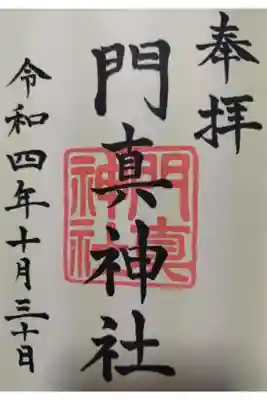 奉拝
門真神社
門真
神社
令和四年十月三十日